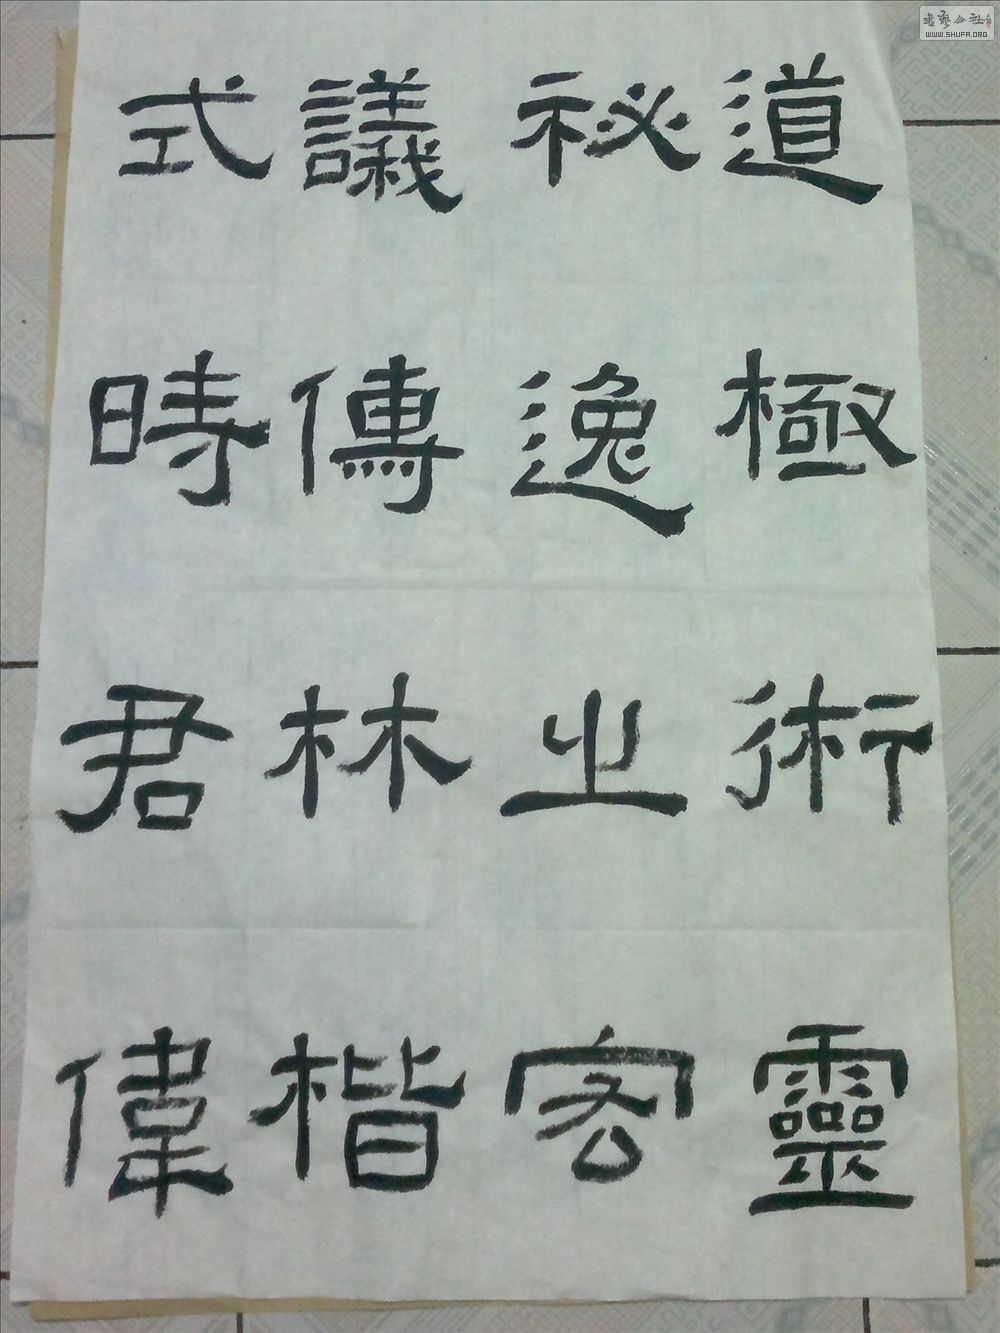 道極術靈
祕逸之客
議傳林楷
式時君偉
書藝公社
WWW.SHUFA.ORG